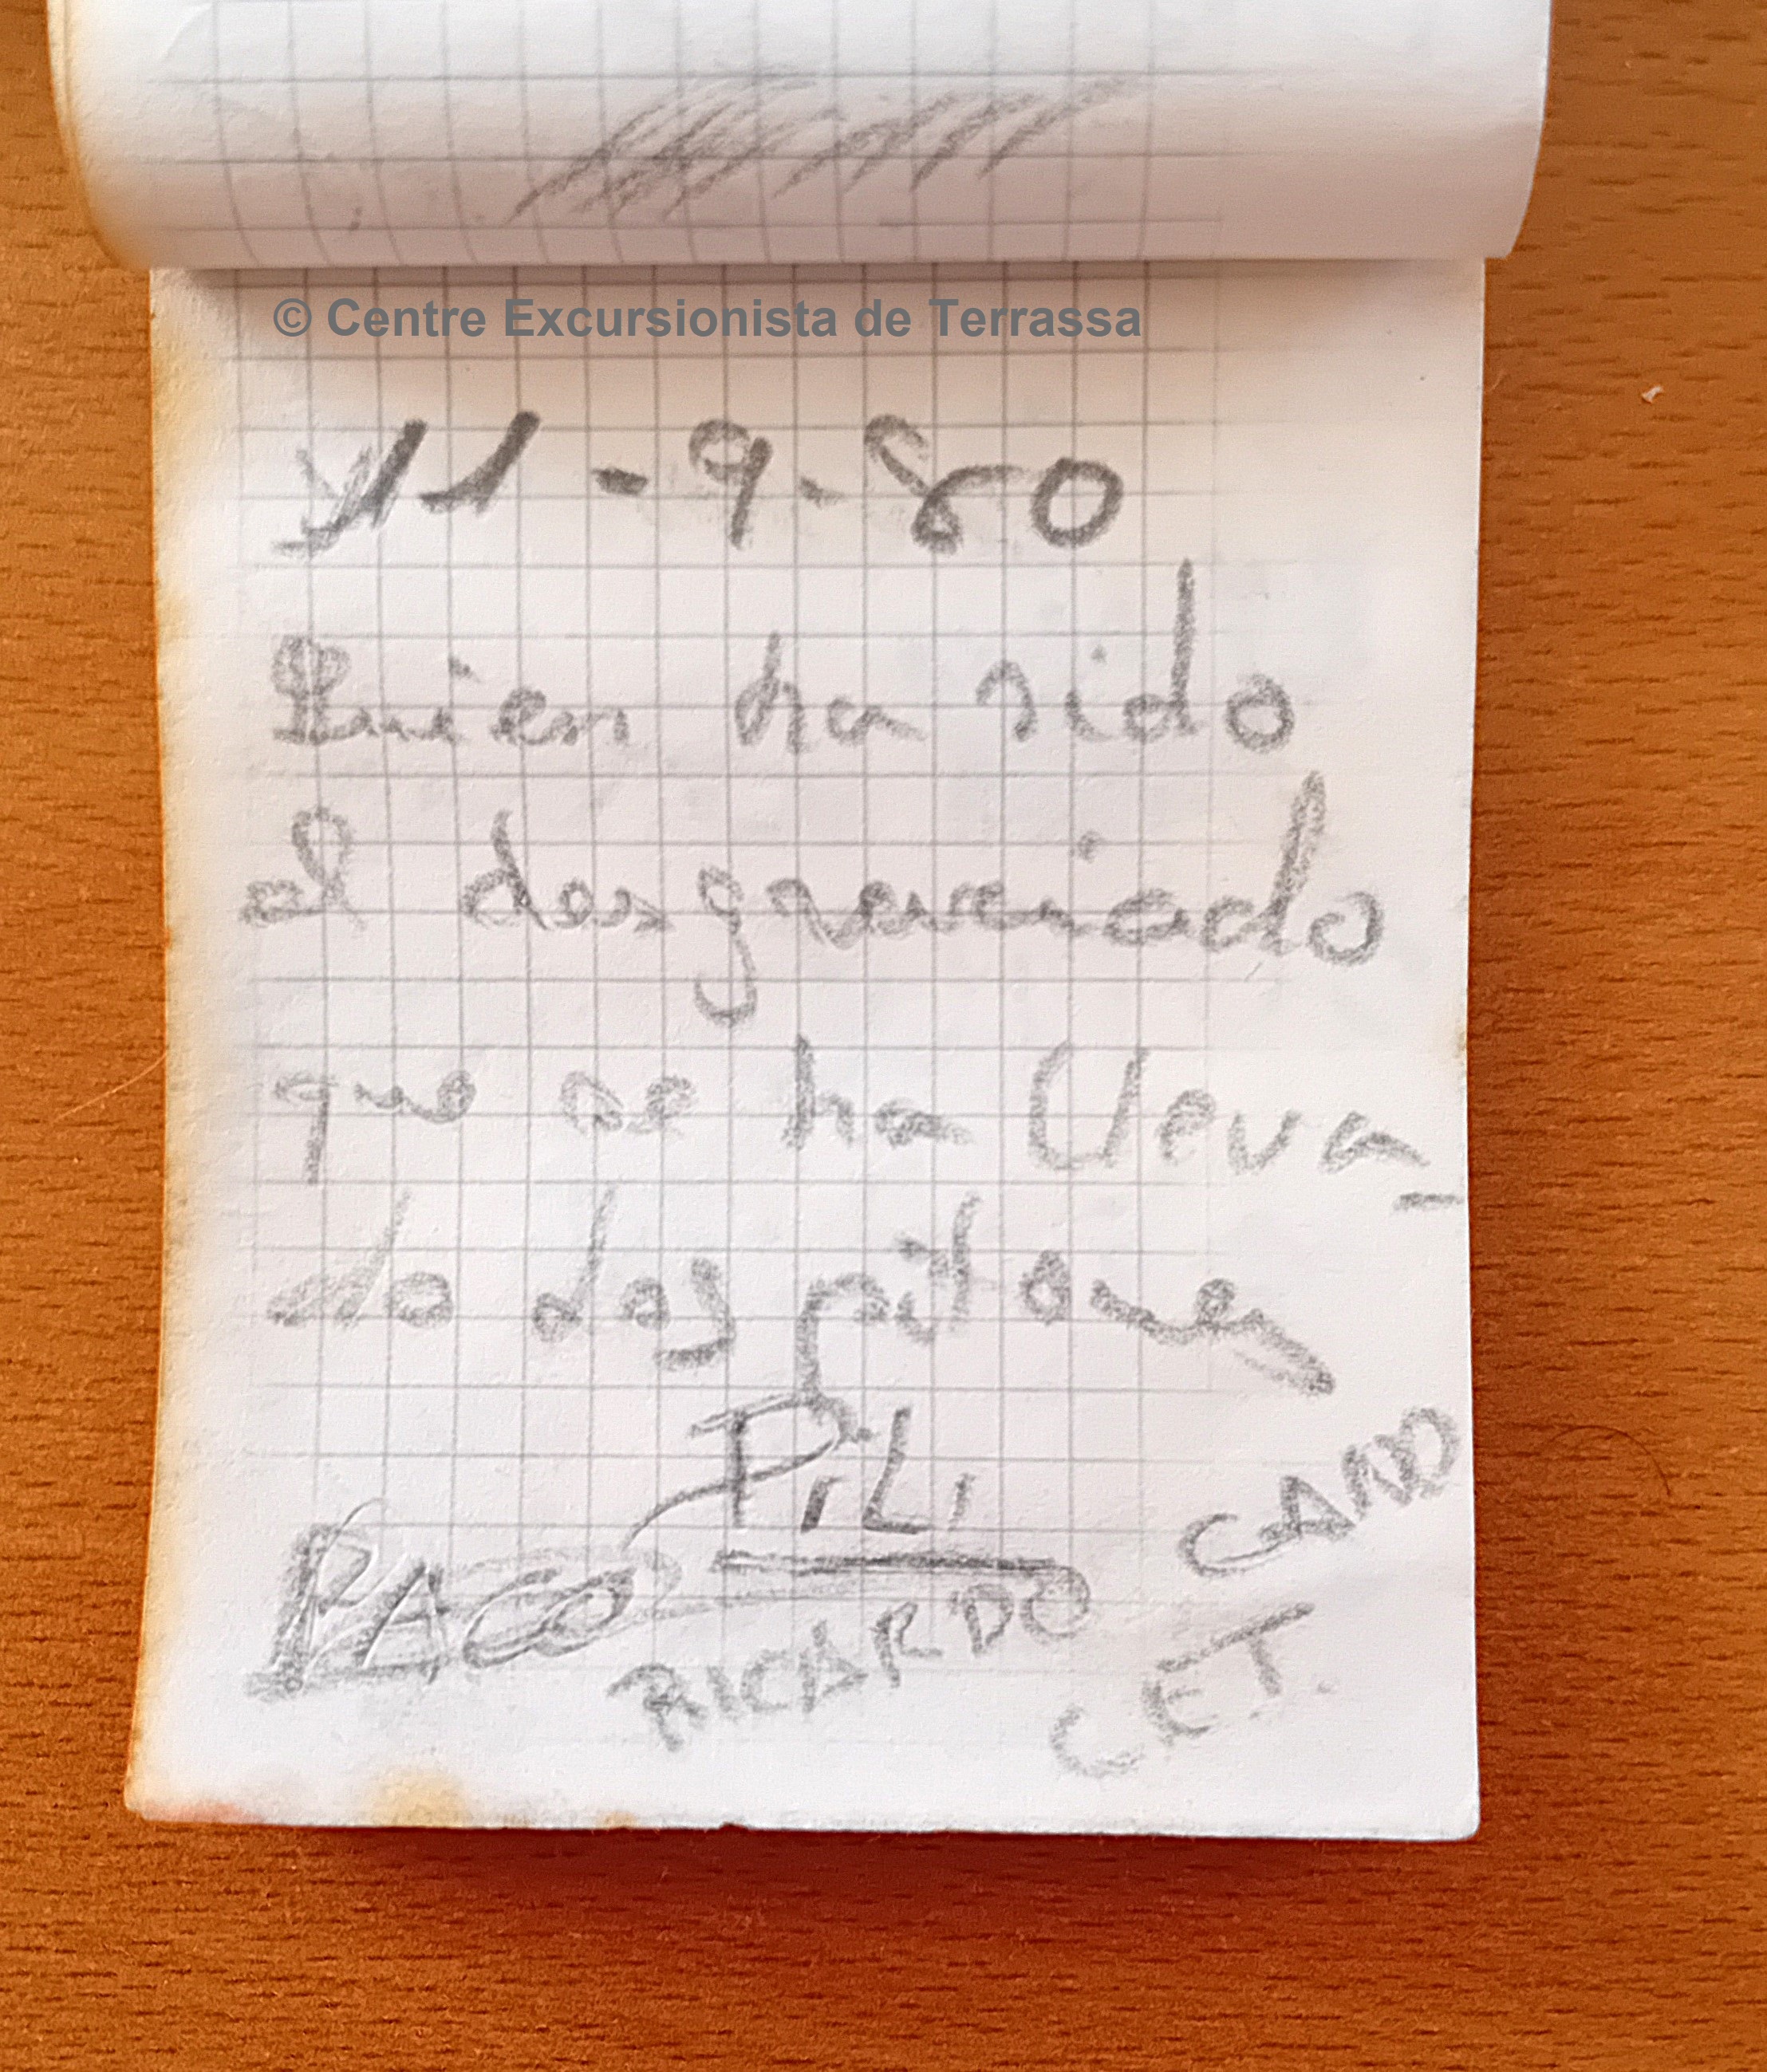 © Centre Excursionista de Terrassa
11-9-80
Quien ha sido
el desgraciado
que se ha lleva-
do dos pitones
PiLi
CAND
PACO
RICARDO
CET.